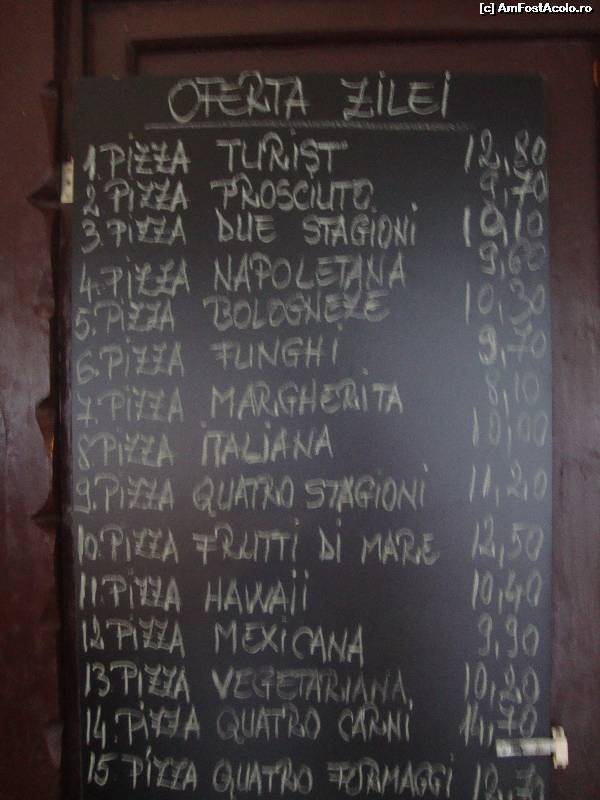 [c] AmFostAcolo.ro
OFERTA ZILEI
1. PIZZA TURIST 12,80
2. PIZZA PROSCIUTO 9,70
3. PIZZA DUE STAGIONI 10,10
4. PIZZA NAPOLETANA 9,60
5. PIZZA BOLOGNEZE 10,30
6. PIZZA FUNGHI 9,70
7. PIZZA MARGHERITA 8,10
8 PIZZA ITALIANA 10,00
9. PIZZA QUATRO STAGIONI 11,20
10. PIZZA FRUTTI DI MARE 12,50
11. PIZZA HAWAII 10,40
12 PIZZA MEXICANA 9,90
13 PIZZA VEGETARIANA 10,20
14. PIZZA QUATRO CARNI 14,70
15 PIZZA QUATRO FORMAGGI 12,70